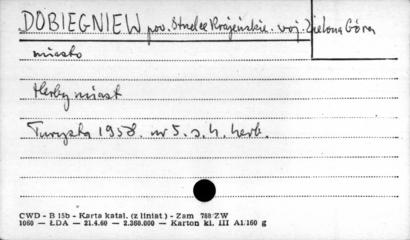 DOBIEGNIEW pow. Strzelce Krajeńskie. woj. Zielona Góra
miasto
Herby miast
Turysta 1958. nr 5. s. 4. herb.
CWD - B 15b - Karta katal. (z liniat.) - Zam 788/ZW
1060 — ŁDA — 21.4.60 — 2.360.000 — Karton kl. III A1.160 g